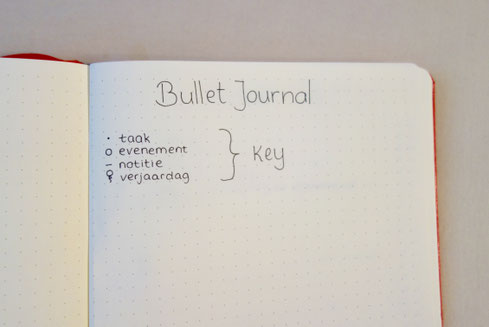 Bullet Journal
• taak
o evenement
– notitie
♀ verjaardag
Key